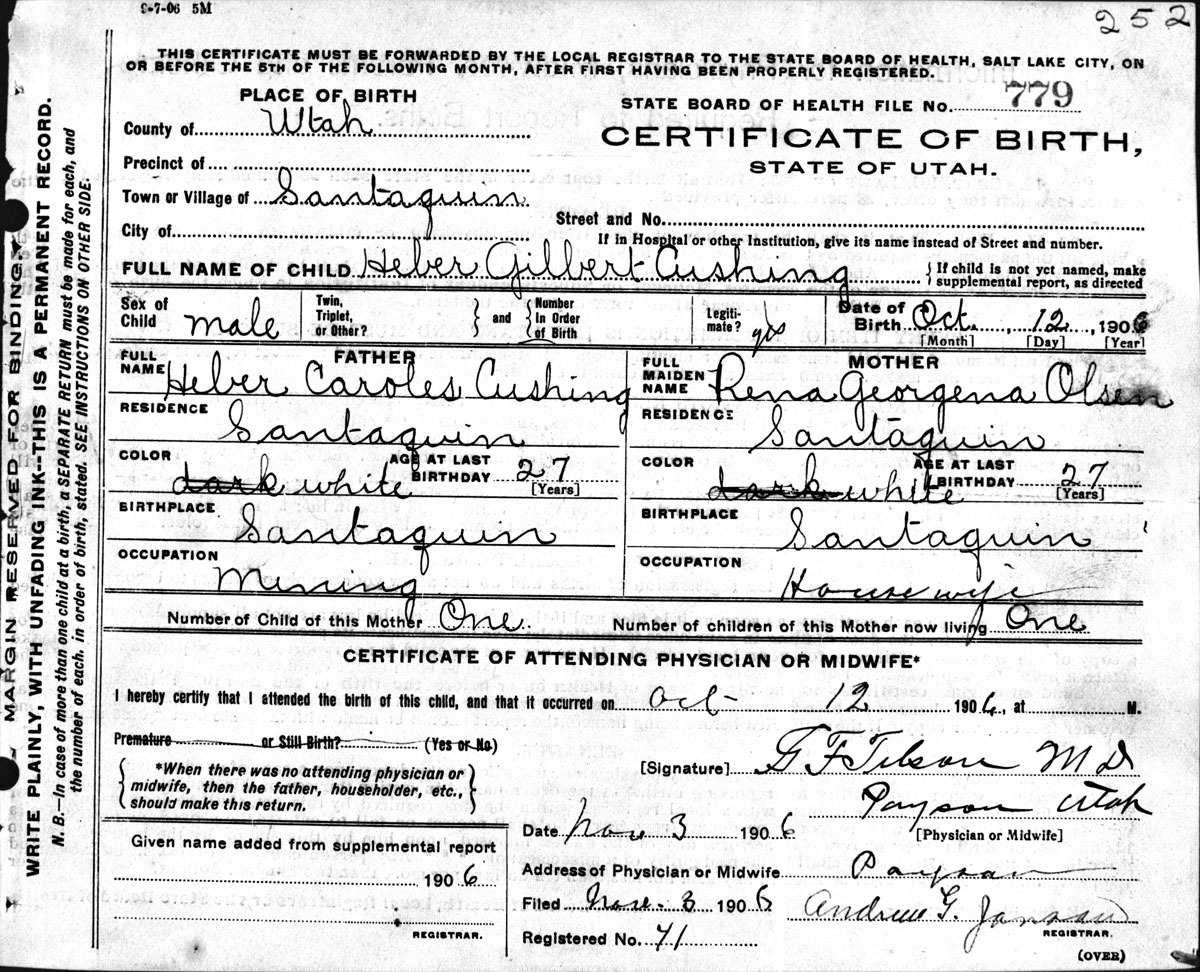 9-7-06 5M
252
THIS CERTIFICATE MUST BE FORWARDED BY THE LOCAL REGISTRAR TO THE STATE BOARD OF HEALTH, SALT LAKE CITY, ON
OR BEFORE THE 5TH OF THE FOLLOWING MONTH, AFTER FIRST HAVING BEEN PROPERLY REGISTERED.
PLACE OF BIRTH
STATE BOARD OF HEALTH FILE NO. 779
County of Utah
CERTIFICATE OF BIRTH,
STATE OF UTAH.
Precinct of
Town or Village of Santaquin
Street and No.
City of
If in Hospital or other Institution, give its name instead of Street and number.
FULL NAME OF CHILD Heber Gilbert Cushing
{ If child is not yet named, make
supplemental report, as directed
Sex of Child male
Twin, Triplet, or Other? } and { Number in Order of Birth
Legitimate? yes
Date of Birth Oct. 12, 1906
[Month] [Day] [Year]
FATHER
FULL NAME Heber Caroles Cushing
RESIDENCE
Santaquin
COLOR dark white
AGE AT LAST BIRTHDAY 27
[Years]
BIRTHPLACE
Santaquin
OCCUPATION
Mining
MOTHER
FULL MAIDEN NAME Rena Georgena Olsen
RESIDENCE
Santaquin
COLOR dark white
AGE AT LAST BIRTHDAY 27
[Years]
BIRTHPLACE
Santaquin
OCCUPATION
Housewife
Number of Child of this Mother One.
Number of children of this Mother now living One
CERTIFICATE OF ATTENDING PHYSICIAN OR MIDWIFE*
I hereby certify that I attended the birth of this child, and that it occurred on Oct 12 1906, at M.
Premature or Still Birth? (Yes or No)
{ *When there was no attending physician or
midwife, then the father, householder, etc.,
should make this return. }
[Signature] G F Tilson M D
Payson Utah
[Physician or Midwife]
Date Nov 3 1906
Given name added from supplemental report
1906
REGISTRAR.
Address of Physician or Midwife Payson
Filed Nov. 3 1906 Andrew G. Janson
REGISTRAR.
Registered No. 71
(OVER)
MARGIN RESERVED FOR BINDING
WRITE PLAINLY, WITH UNFADING INK--THIS IS A PERMANENT RECORD.
N. B.—In case of more than one child at a birth, a SEPARATE RETURN must be made for each, and
the number of each, in order of birth, stated. SEE INSTRUCTIONS ON OTHER SIDE.